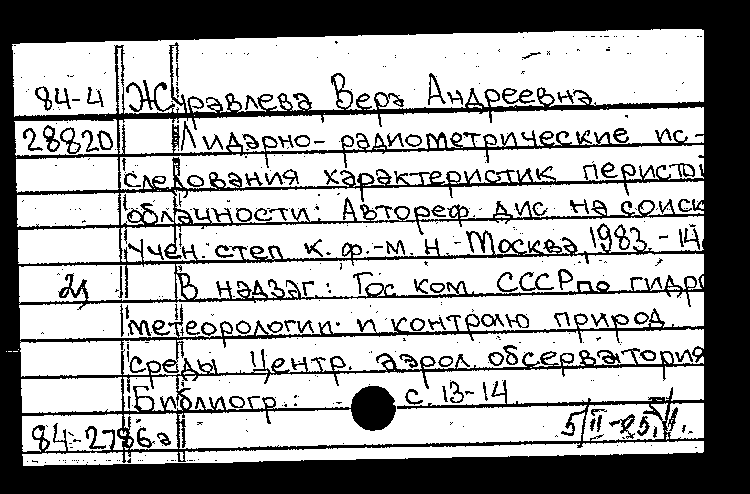 84-4 Журавлева, Вера Андреевна
28820 Лидарно-радиометрические ис-
следования характеристик перистой
облачности: Автореф. дис. на соиск.
учен. степ. к. ф.-м. н. - Москва, 1983. - 14
В надзаг.: Гос. ком. СССР по гидро
метеорологии и контролю природ.
среды. Центр. аэрол. обсерватория
Библиогр.: с. 13-14
84-2786а